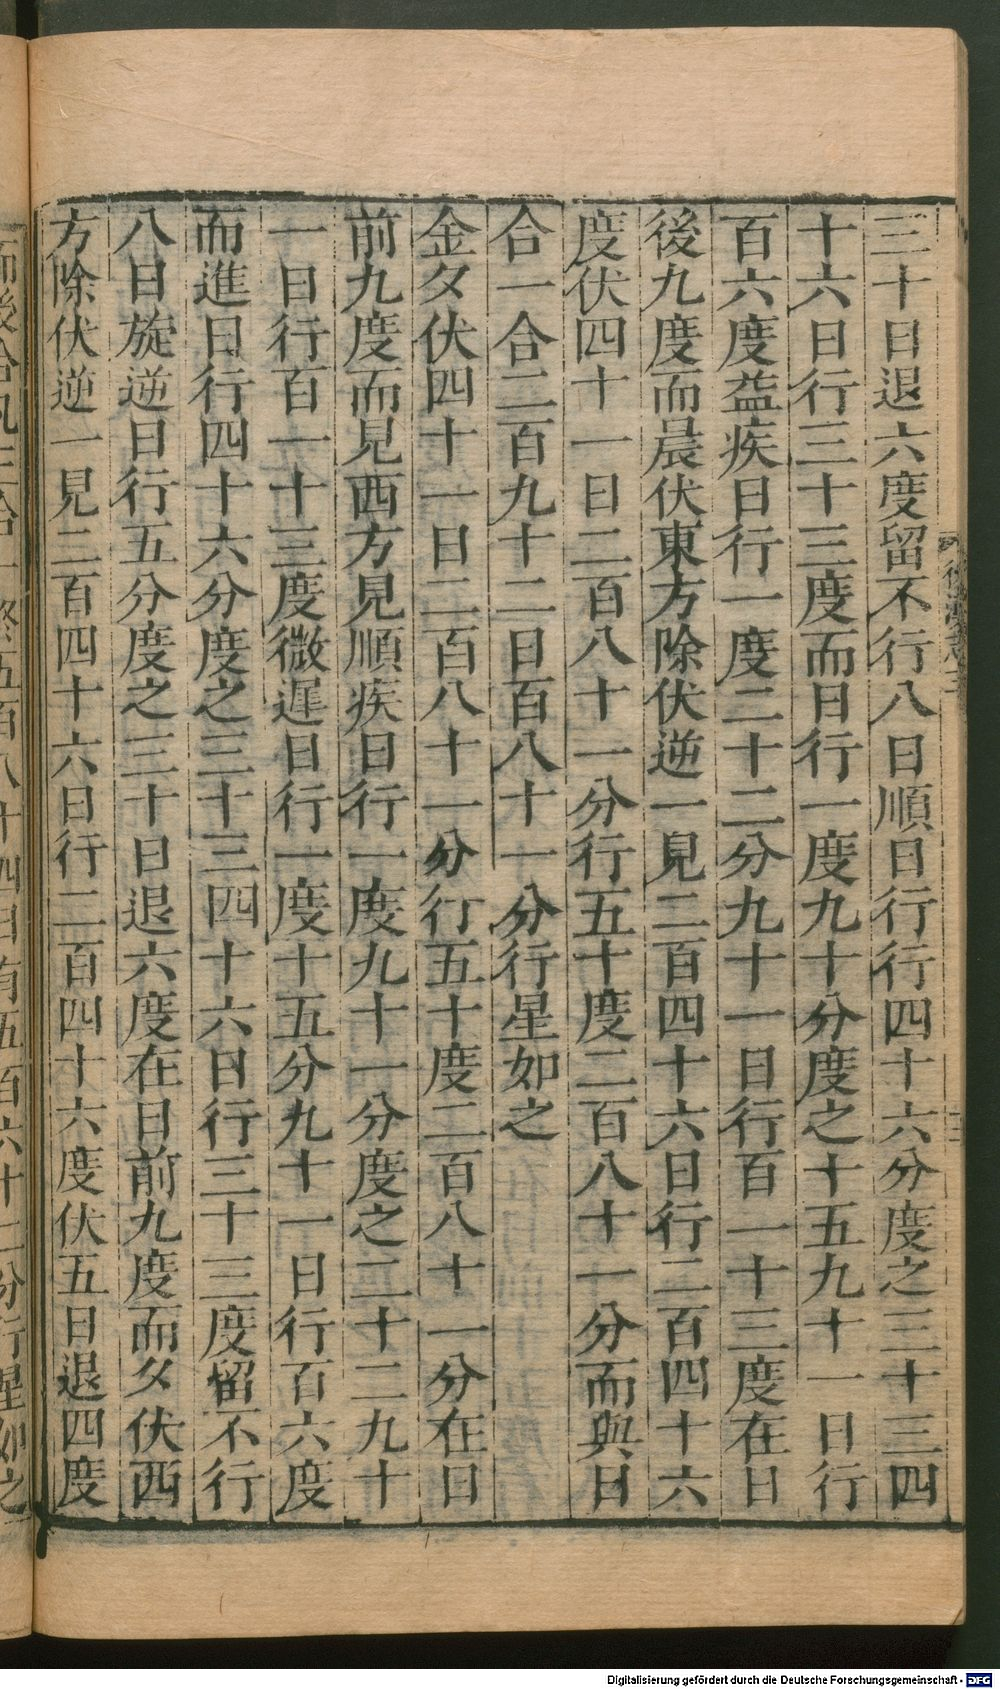 三十日退六度留不行八日順日行行四十六分度之三十三四
十六日行三十三度而日行一度九十分度之十五九十一日行
百六度益疾日行一度二十二分九十一日行百一十三度在日
後九度而晨伏東方除伏逆一見二百四十六日行二百四十六
度伏四十一日二百八十一分行五十度二百八十一分而與日
合一合二百九十二日百八十一分行星如之
金夕伏四十一日二百八十一分行五十度二百八十一分在日
前九度而見西方見順疾日行一度九十一分度之二十二九十
一日行百一十三度微遲日行一度十五分九十一日行百六度
而進日行四十六分度之三十三四十六日行三十三度留不行
八日旋逆日行五分度之三十日退六度在日前九度而夕伏西
方除伏逆一見二百四十六日行二百四十六度伏五日退四度
而後合凡三合一終五百八十四日有五百六十二分行星如之
Digitalisierung gefördert durch die Deutsche Forschungsgemeinschaft - DFG